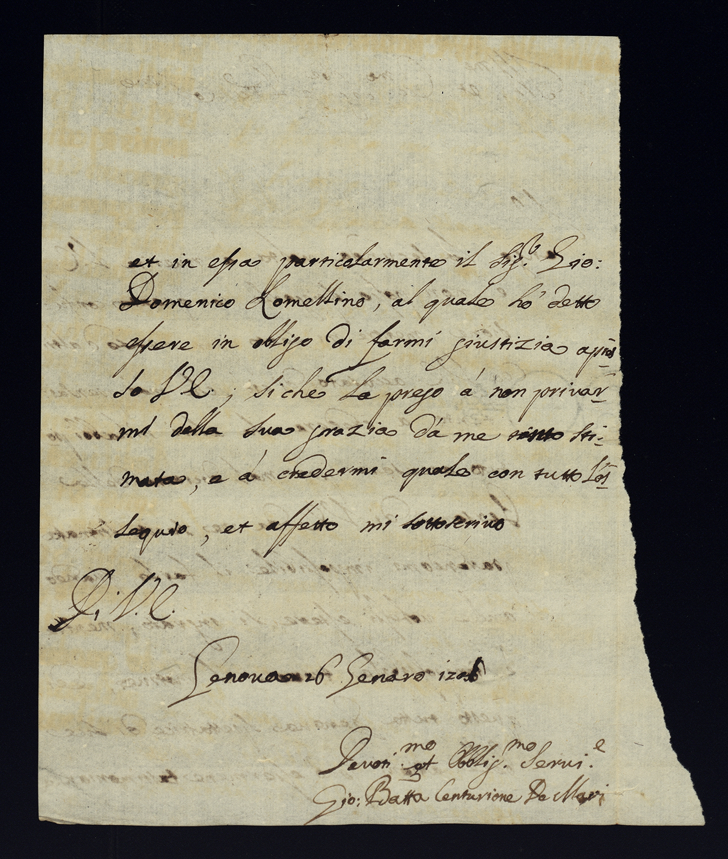 et in essa particolarmente il Sig.r Gio:
Domenico Lomellino, al quale hò detto
essere in obligo di farmi giustizia apres-
so V.E.; siche La prego à non privar-
mi della sua grazia dà me tanto sti-
mata, e à credermi quale con tutto l'os-
sequio, et affetto mi sottoscrivo
Di V.E.
Genova 26 Genaro
Devot.mo et Oblig.mo Servi.e
Gio: Batta Centurione De Mari